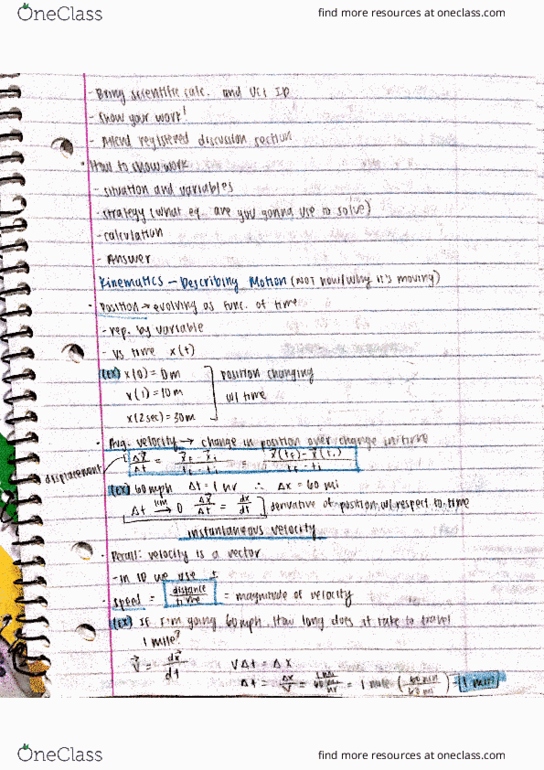 OneClass
find more resources at oneclass.com
- Bring scientific calc. and UCI ID
- Show your work!
- Attend registered discussion section
• How to show work
- situation and variables
- strategy (what eq. are you gonna use to solve)
- calculation
- Answer
Kinematics - Describing Motion (NOT how/why it's moving)
• Position → evolving as func. of time
- rep. by variable
- vs time x(t)
(EX) x(0) = 0m ] position changing
x(1) = 10m w/ time
x(2sec) = 30m
• Avg. velocity → change in position over change in time
displacement Δx⃗/Δt = (x⃗f - x⃗i)/(tf - ti) = (x⃗(tf) - x⃗(ti))/(tf - ti)
(EX) 60mph Δt = 1 hr ∴ Δx = 60 mi
lim Δt → 0 Δx⃗/Δt = dx/dt ] derivative of position w/ respect to time
instantaneous velocity
• Recall: velocity is a vector
- in 1D we use ±
• speed = distance/time = magnitude of velocity
(EX) If I'm going 60mph, How long does it take to travel
1 mile?
v⃗ = dx⃗/dt VΔt = Δx
Δt = Δx/V = 1mi/(60 mi/hr) = 1 mile (60min/60mi) = 1 min
OneClass
find more resources at oneclass.com